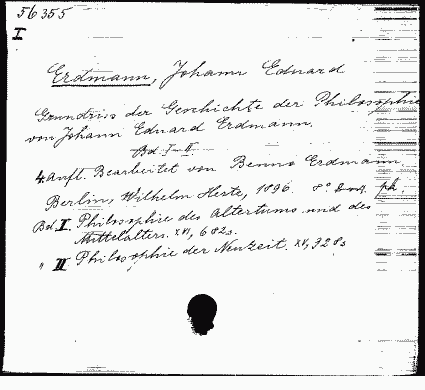 56355
I
Erdmann, Johann Eduard
Grundriss der Geschichte der Philosophie
von Johann Eduard Erdmann.
Bd. I-II
4. Aufl. Bearbeitet von Benno Erdmann
Berlin, Wilhelm Hertz, 1896 8°
Bd. I. Philosophie des Altertums und des
Mittelalters. XVI, 682s.
" II Philosophie der Neuzeit. XV, 928s